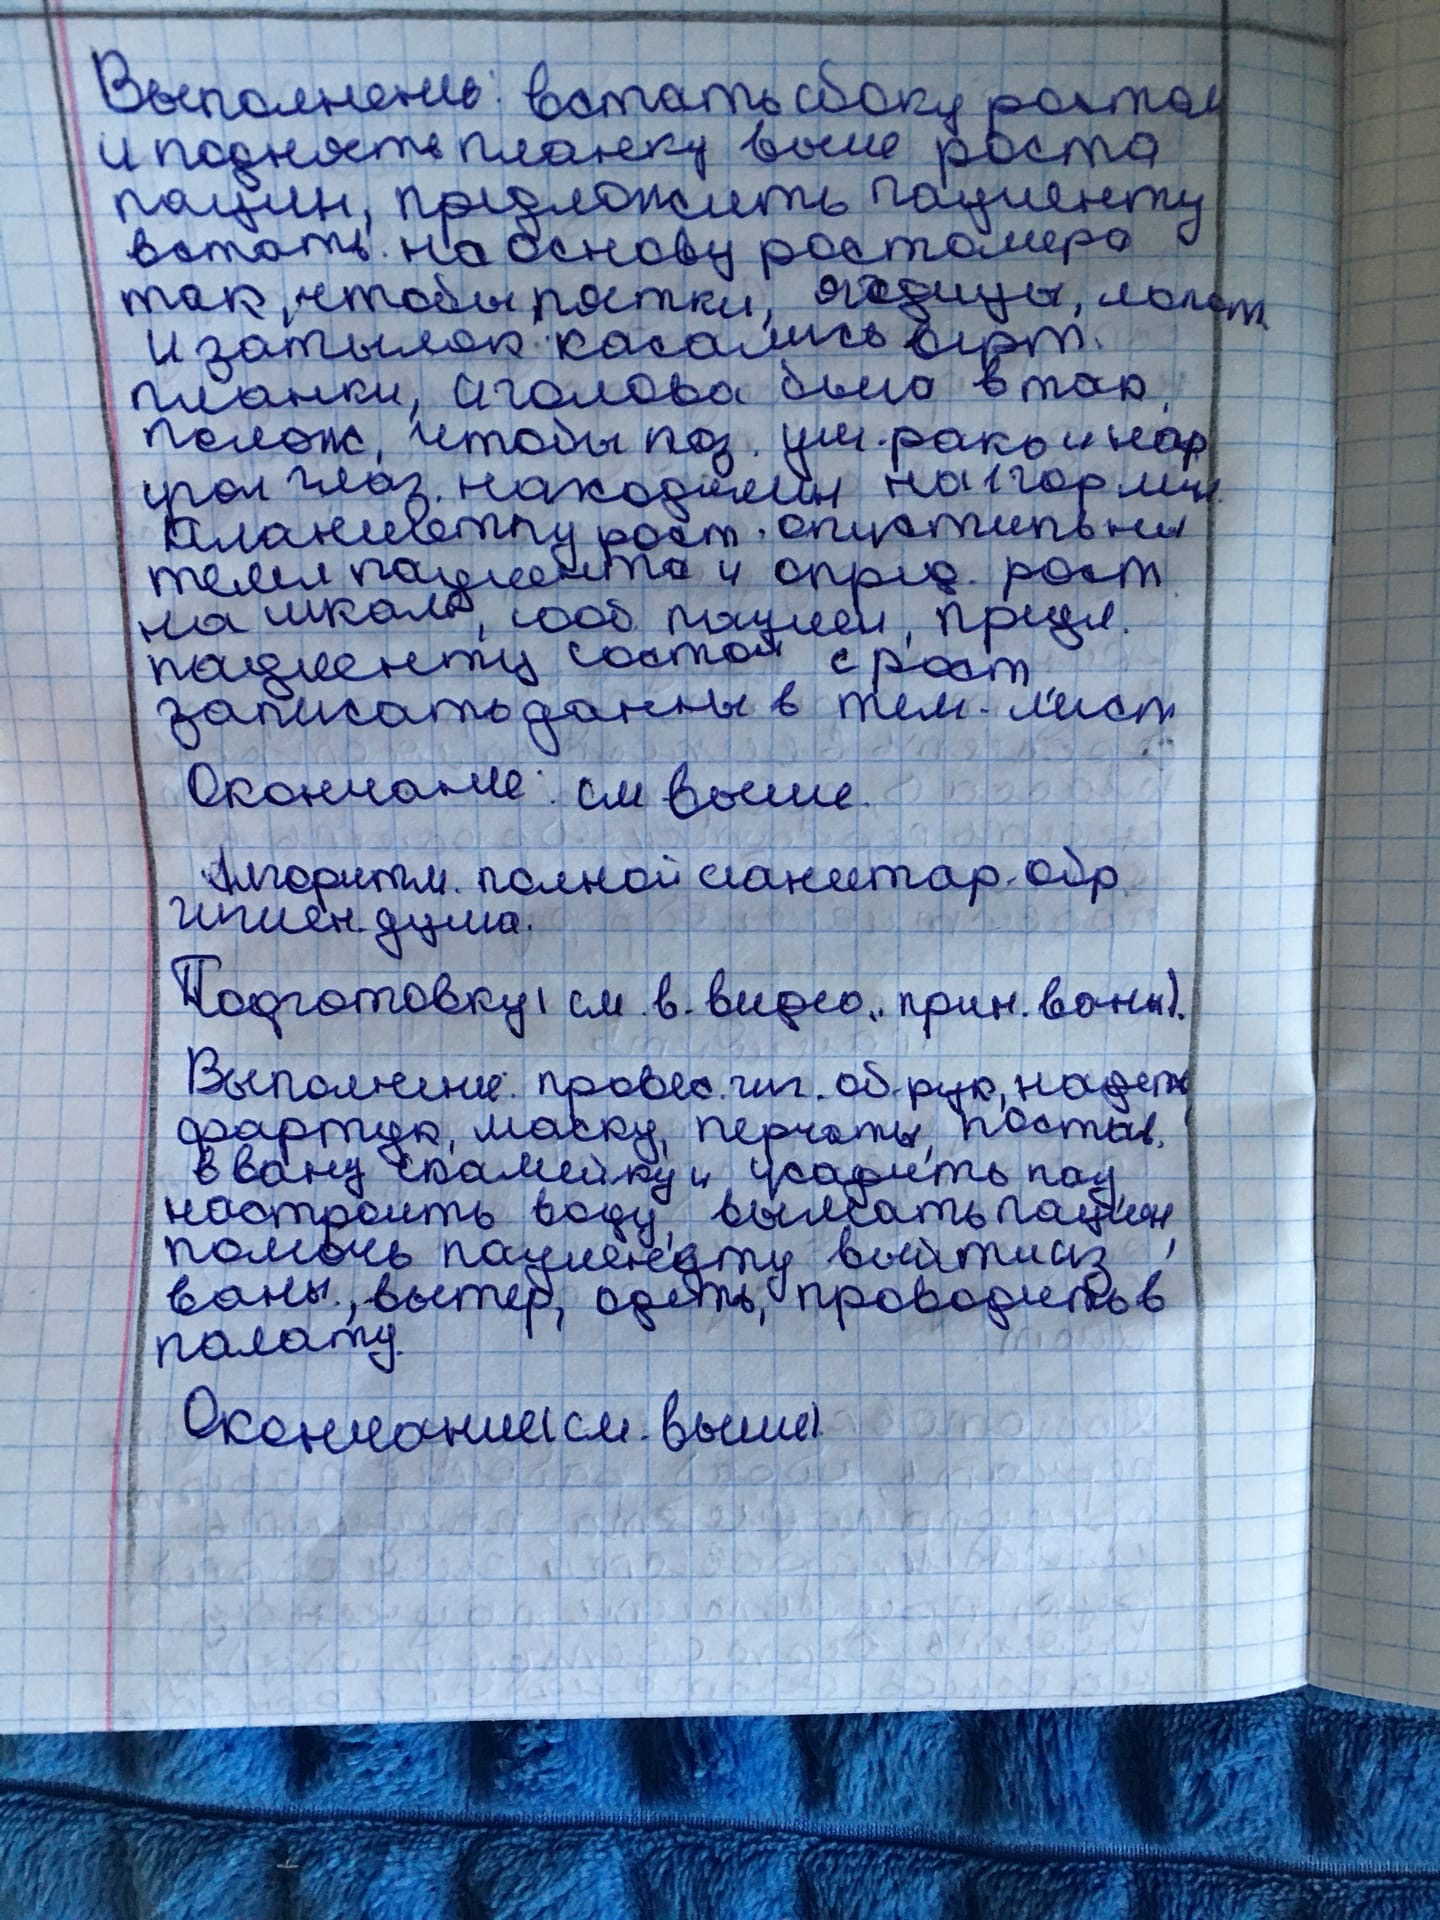 Выполнение: встать сбоку ростом
и поднять планку выше роста
пациен, предложить пациенту
встать на основу ростомера
так, чтобы пятки, ягодицы, лопат.
и затылок касались верт.
планки, а голова была в так.
полож, чтобы коз. уш. рако и нар
угол глаз. находились на 1 гор лин.
Планшетку рост. опустить на
темя пациента и опред. рост
на шкале, сооб пациен, предл.
пациенту состой с рост
записать данны в тем. лист
Окончание: см выше.
Алгоритм. полной санитар. обр
гигиен. душа.
Подготовку (см. в. видео „прин. ваны).
Выполнение: провес. гиг. об рук, надеть
фартук, маску, перчаты, постав.
в вану скамейку и усадить пац
настроить воду, вымать пациен,
помочь пациенту выйти из
ваны, вытер, одеть, проводить в
палату.
Окончание (см. выше)